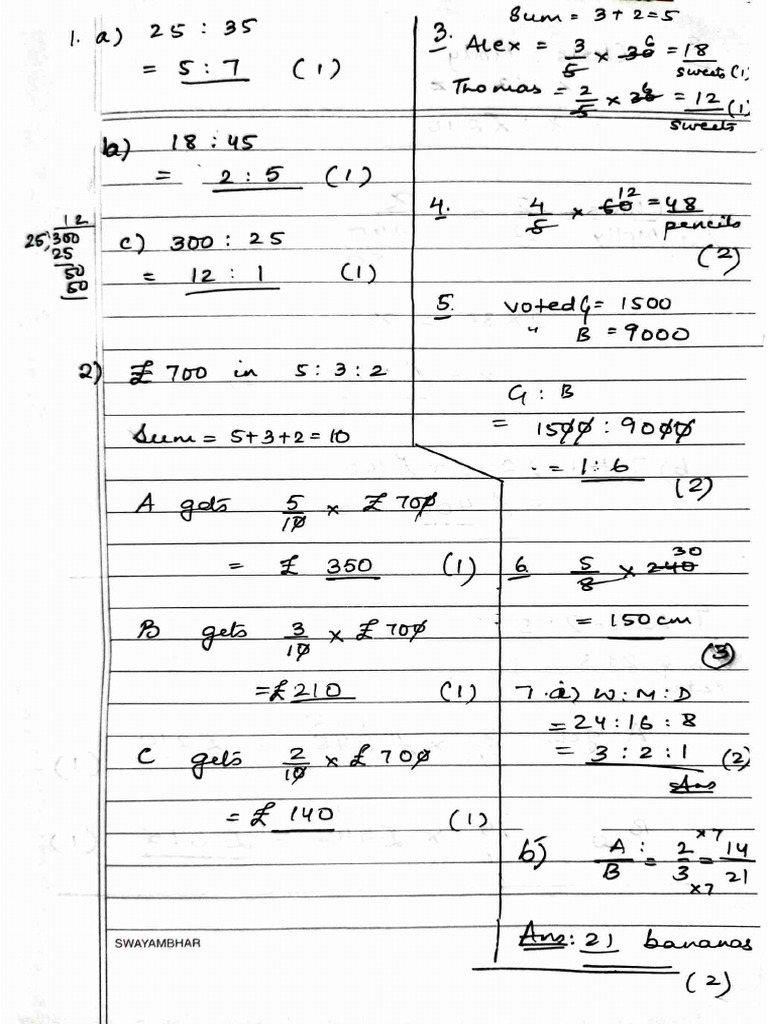 1. a) 25 : 35
= 5 : 7 (1)
b) 18 : 45
= 2 : 5 (1)
12
25)300
25
50
50
c) 300 : 25
= 12 : 1 (1)
2) £ 700 in 5 : 3 : 2
Sum = 5+3+2 = 10
A gets 5/10 × £ 700
= £ 350 (1)
B gets 3/10 × £ 700
= £ 210 (1)
C gets 2/10 × £ 700
= £ 140 (1)
SWAYAMBHAR
Sum = 3+2=5
3. Alex = 3/5 × 30 6 = 18
sweets (1)
Thomas = 2/5 × 30 6 = 12 (1)
sweets
4. 4/5 × 60 12 = 48
pencils
(2)
5. voted G = 1500
" B = 9000
G : B
= 1500 : 9000
= 1:6
(2)
6. 5/8 × 240 30
= 150 cm
(3)
7. a) W : M : D
= 24 : 16 : 8
= 3 : 2 : 1 (2)
Ans
b) A : / B = 2/3 ×7 ×7 = 14/21
Ans: 21 bananas
(2)